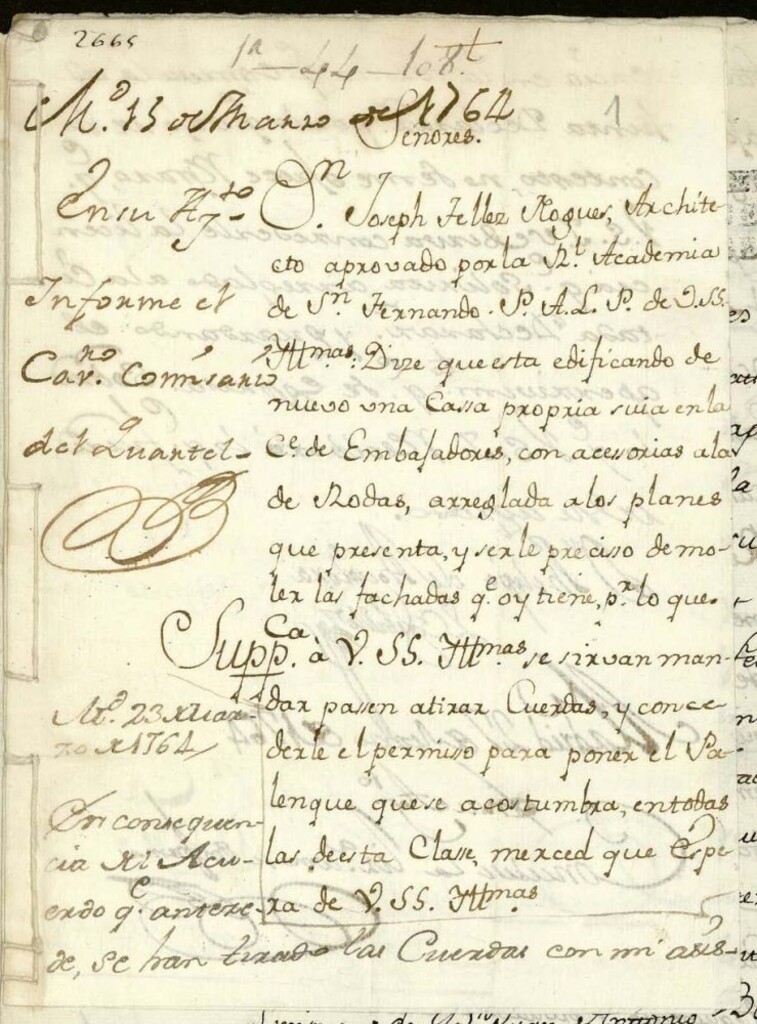 2665
1ª - 44 - 108.t
1
M.º 13 de Marzo de 1764
Señores.
En su Ay.to
Informe el
Cav.ro Comisario
del Quartel -
D.n Joseph Tellez Nogues, Archite-
cto aprovado por la R.l Academia
de S.n Fernando. P. A. L. P. de V. SS.
Illmas: Dize que esta edificando de
nuevo una Cassa propria suia en la
C.e de Embasadores, con acesorias ala
de Rodas, arreglada a los planes
que presenta, y ser le precisso demo-
ler las fachadas q.e oy tiene, p.r lo que.
Supp.ca à V. SS. Illmas se sirvan man-
dar passen atirar Cuerdas, y conce-
derle el permiso para poner el Pa-
lenque que se acostumbra, en todas
las de esta Clase, merced que Espe-
ra de V. SS. Illmas
M.d 23 de Mar-
zo de 1764
En consequen-
cia del Acu-
erdo q.e antece-
de, se han tirado las Cuerdas con mi asis-
Antonio